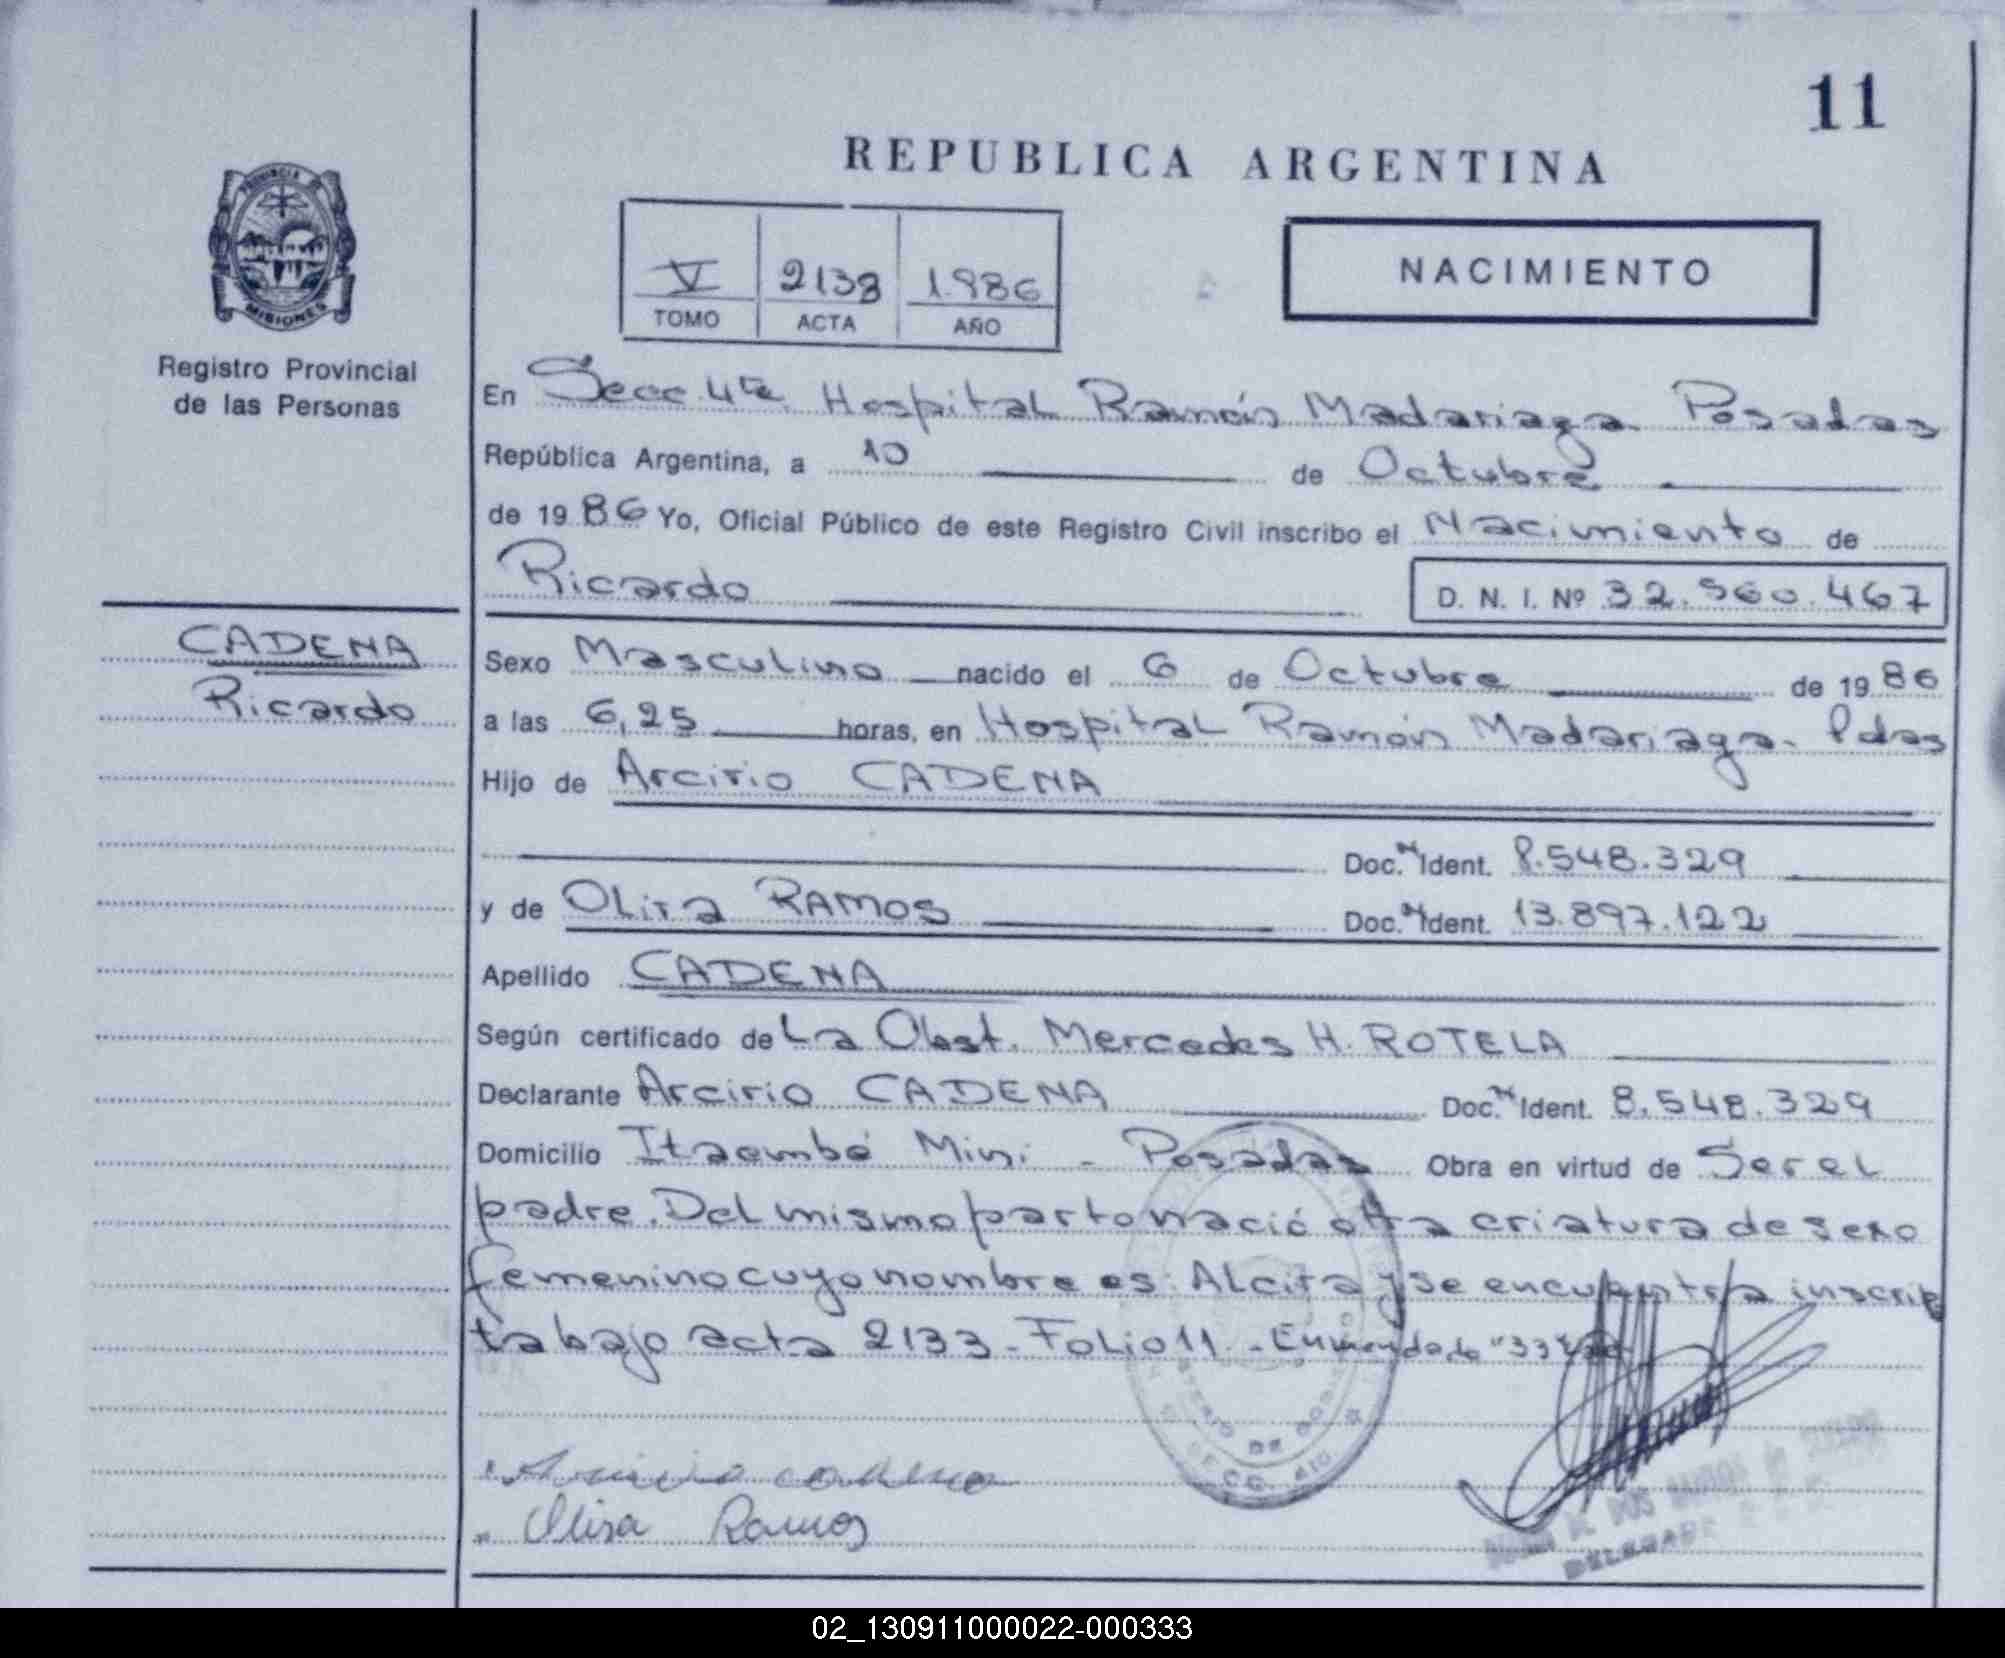 11
REPUBLICA ARGENTINA
PROVINCIA DE
MISIONES
Registro Provincial
de las Personas
V 2138 1.986
TOMO ACTA AÑO
NACIMIENTO
En Secc. 4ta. Hospital Ramón Madariaga Posadas
República Argentina, a 10 de Octubre
de 19 86 Yo, Oficial Público de este Registro Civil inscribo el Nacimiento de
Ricardo D. N. I. Nº 32.560.467
CADENA
Ricardo
Sexo Masculino nacido el 6 de Octubre de 19 86
a las 6,25 horas, en Hospital Ramón Madariaga. Pdas
Hijo de Arcirio CADENA
Doc. N Ident. 8.548.329
y de Olira RAMOS Doc. N Ident. 13.897.122
Apellido CADENA
Según certificado de La Obst. Mercedes H. ROTELA
Declarante Arcirio CADENA Doc. N Ident. 8.548.329
Domicilio Itaembé Mini - Posadas Obra en virtud de Ser el
padre. Del mismo parto nació otra criatura de sexo
femenino cuyo nombre es: Alcira y se encuentra inscrip
ta bajo acta 2133 - Folio 11 - Enmendado "33"
Arcirio cadena
Olira Ramos
DELEGADA
02_130911000022-000333